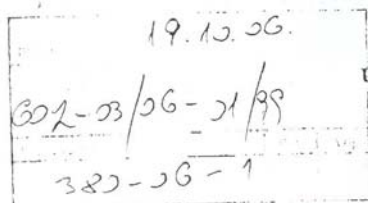 19.10.06.
602-03/06-01/99
380-06-1